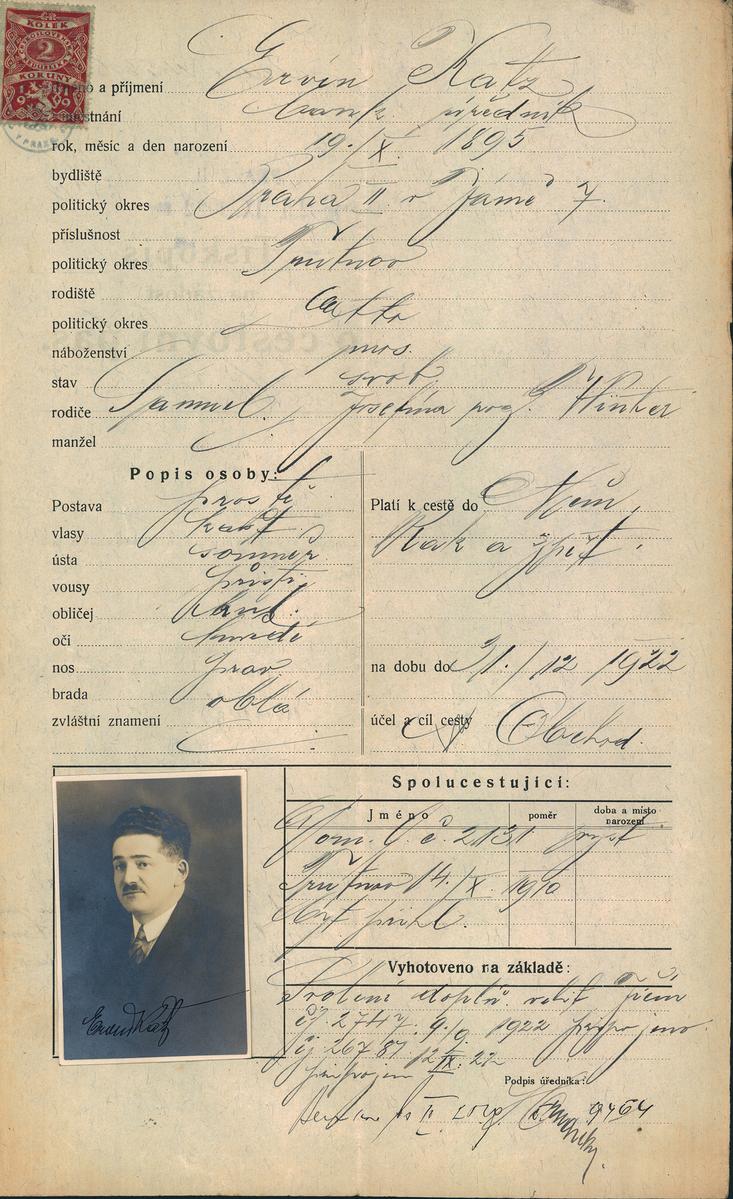 KOLEK
2
KORUNY
jméno a příjmení Ervín Katz
zaměstnání bank. úředník
rok, měsíc a den narození 19./X. 1895
bydliště
politický okres Praha II v Jámě 7.
příslušnost
politický okres Trutnov
rodiště
politický okres
náboženství mos.
stav svob.
rodiče Samuel, Josefina roz. Winter
manžel
Popis osoby:
Postava prostř.
vlasy kašt.
ústa souměr.
vousy přistř.
obličej kul.
očí hnědé
nos prav.
brada oblá
zvláštní znamení
Platí k cestě do Něm.
Rak a zpět.
na dobu do 31./12 1922
účel a cíl cesty Obchod.
Spolucestující:
Jméno poměr doba a místo narození
Dom. l. č. 2131
Trutnov 14./X 1910
Vyhotoveno na základě:
čj. 2747 9./9. 1922 připojeno.
čj 26787 12/IX. 22
Podpis úředníka:
9464
Ervín Katz